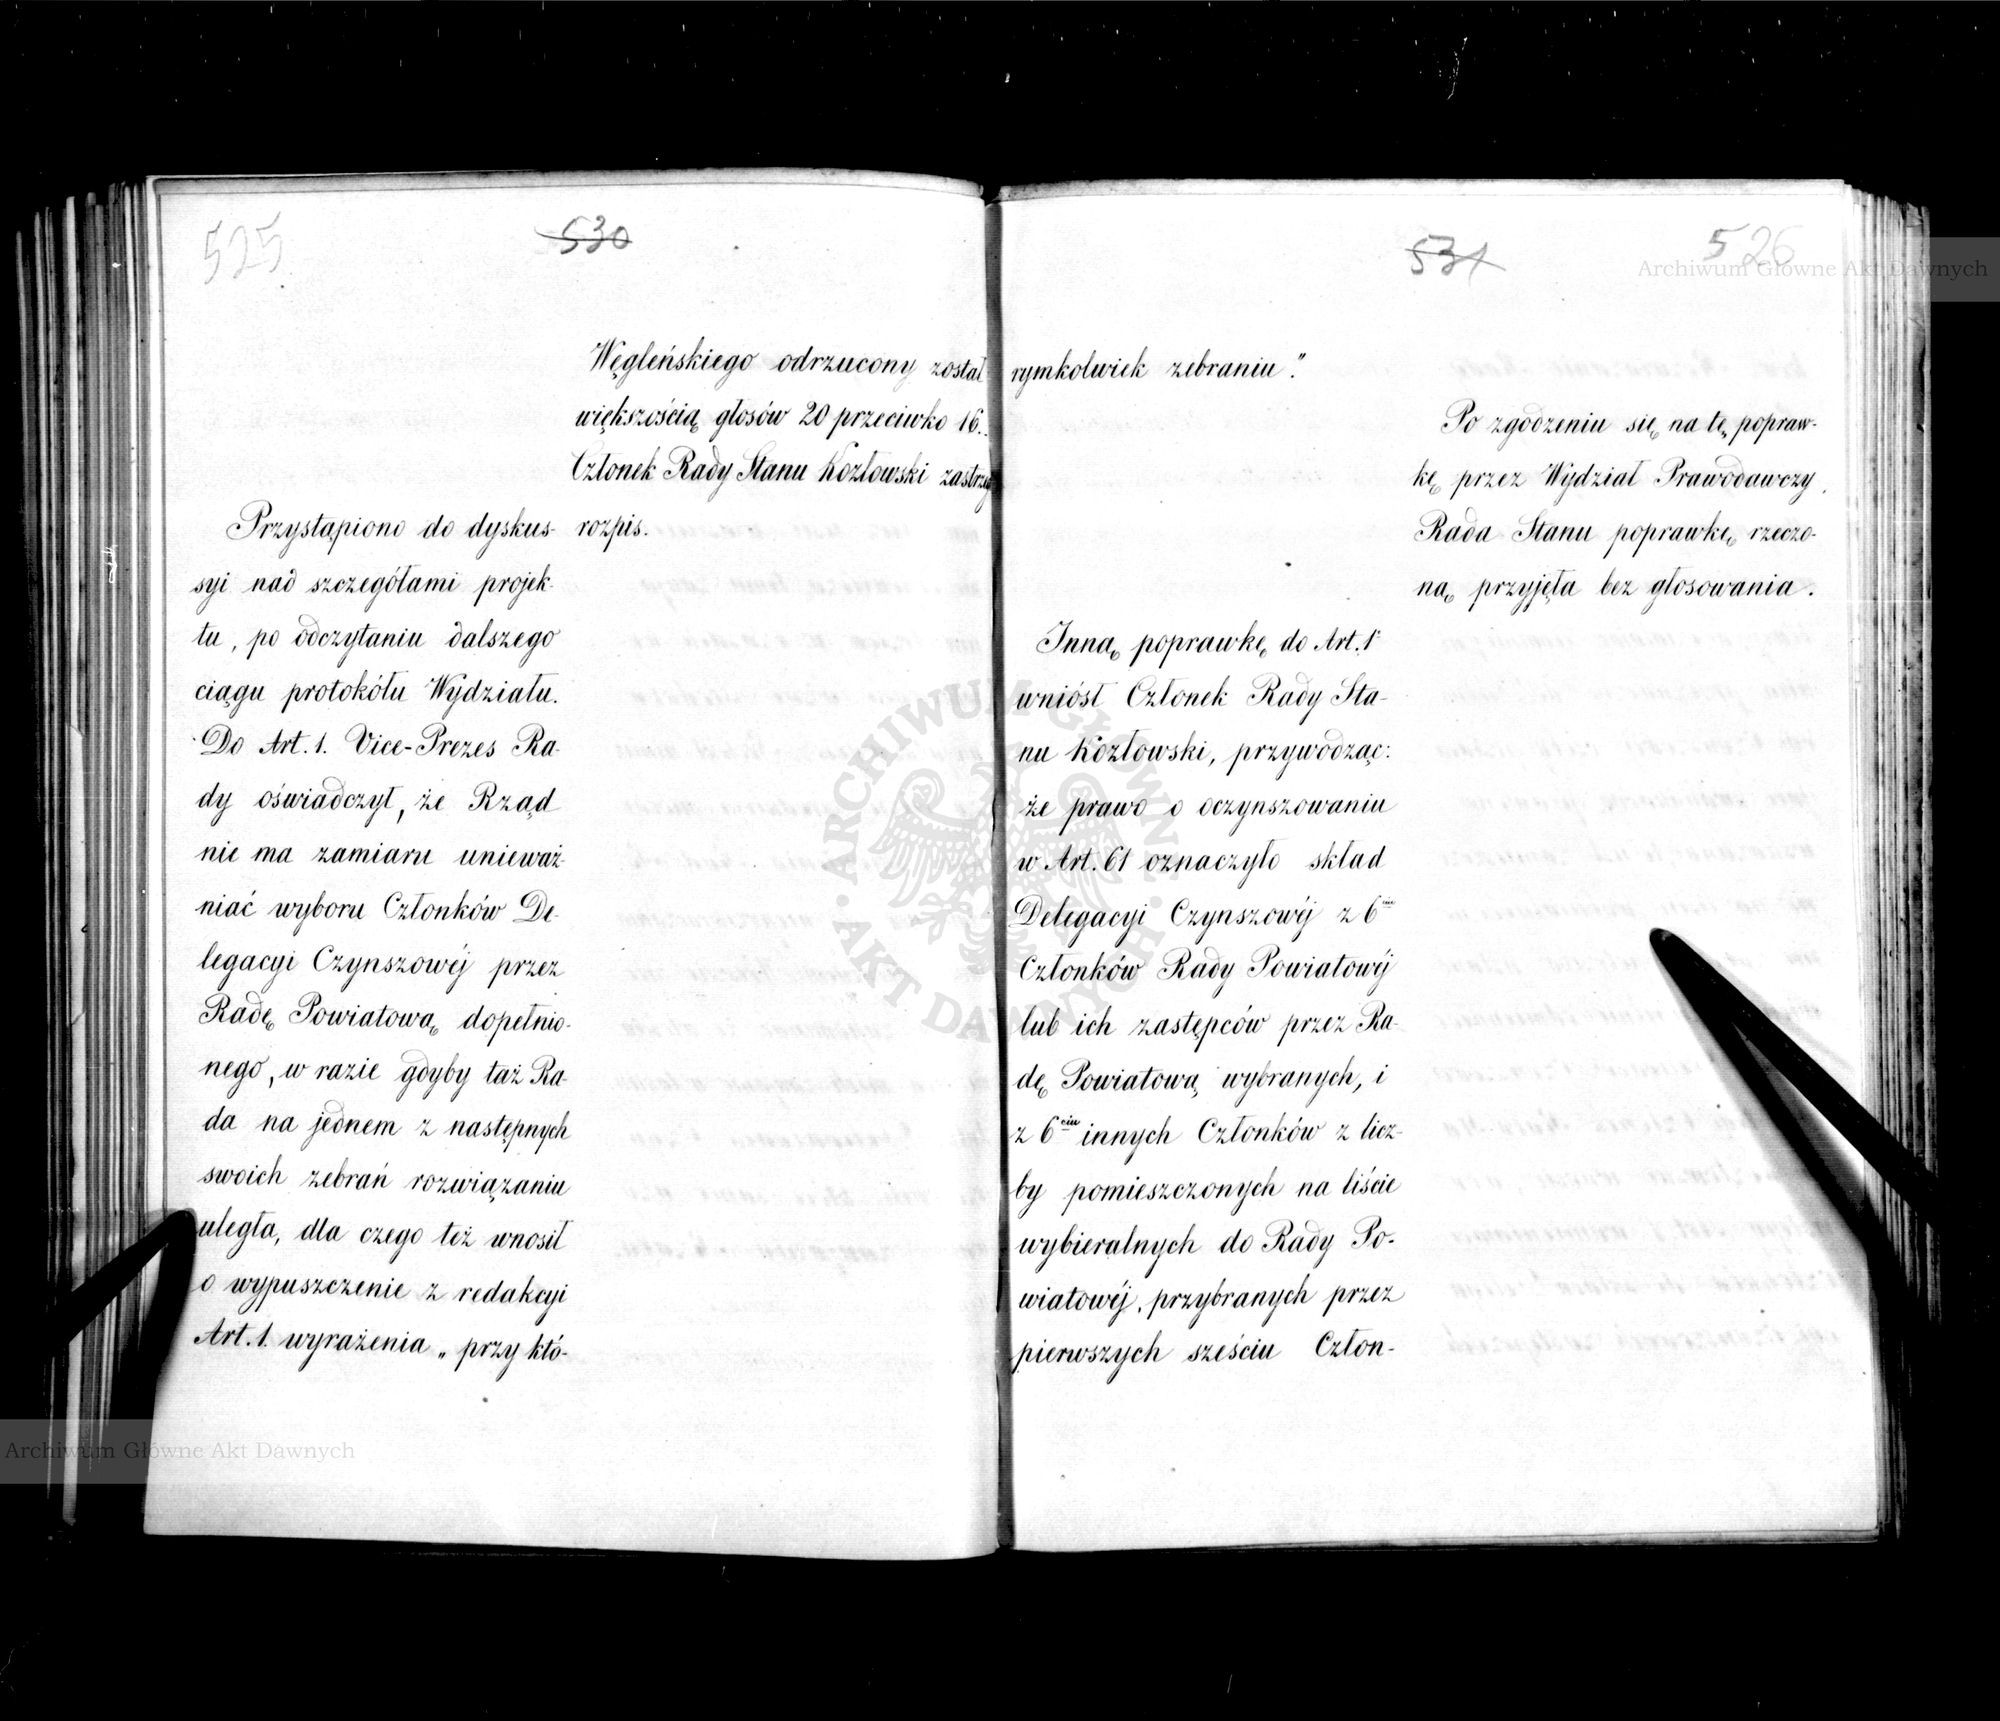 525
530
Węgleńskiego odrzucony został
większością głosów 20 przeciwko 16.
Członek Rady Stanu Kozłowski
rozpis.
Przystąpiono do dyskus-
syi nad szczegółami projek-
tu, po odczytaniu dalszego
ciągu protokółu Wydziału.
Do Art. 1. Vice-Prezes Ra-
dy oświadczył, że Rząd
nie ma zamiaru unieważ-
niać wyboru Członków De-
legacyi Czynszowéj przez
Radę Powiatową dopełnio-
nego, w razie gdyby taż Ra-
da na jednem z następnych
swoich zebrań rozwiązaniu
uległa, dla czego też wnosił
o wypuszczenie z redakcyi
Art. 1. wyrażenia „przy któ-
531
526
rymkolwiek zebraniu".
Po zgodzeniu się na tę popraw-
kę przez Wydział Prawodawczy,
Rada Stanu poprawkę rzeczo-
ną przyjęła bez głosowania.
Inną poprawkę do Art. 1
wniósł Członek Rady Sta-
nu Kozłowski, przywodząc:
że prawo o oczynszowaniu
w Art. 61 oznaczyło skład
Delegacyi Czynszowéj z 6ciu
Członków Rady Powiatowéj
lub ich zastępców przez Ra-
dę Powiatową wybranych, i
z 6ciu innych Członków z licz-
by pomieszczonych na liście
wybieralnych do Rady Po-
wiatowéj, przybranych przez
pierwszych sześciu Człon-
Archiwum Główne Akt Dawnych
ARCHIWUM GŁÓWNE AKT DAWNYCH
Archiwum Główne Akt Dawnych